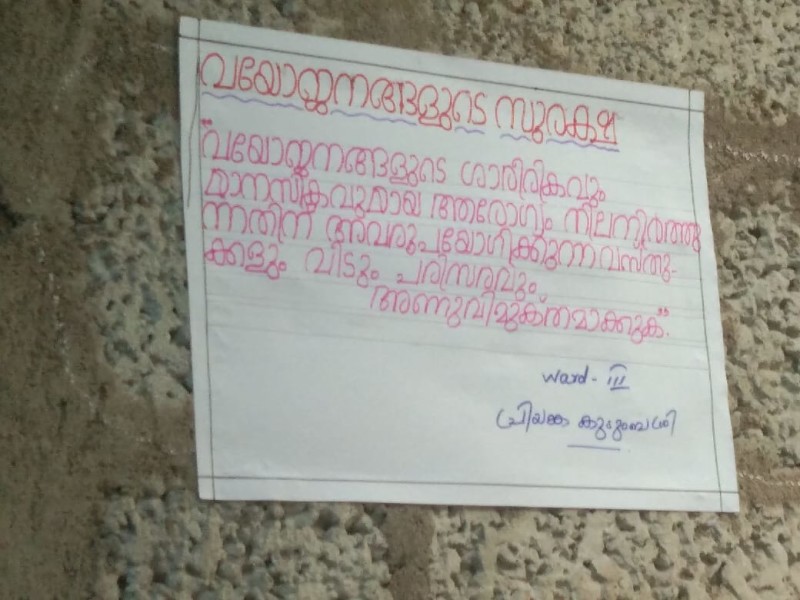 വയോജനങ്ങളുടെ സുരക്ഷ
"വയോജനങ്ങളുടെ ശാരീരികവും
മാനസികവുമായ ആരോഗ്യം നിലനിർത്തു
ന്നതിന് അവരുപയോഗിക്കുന്ന വസ്തു-
ക്കളും വീടും പരിസരവും
അണുവിമുക്തമാക്കുക".
ward - III
കുടുംബശ്രീ